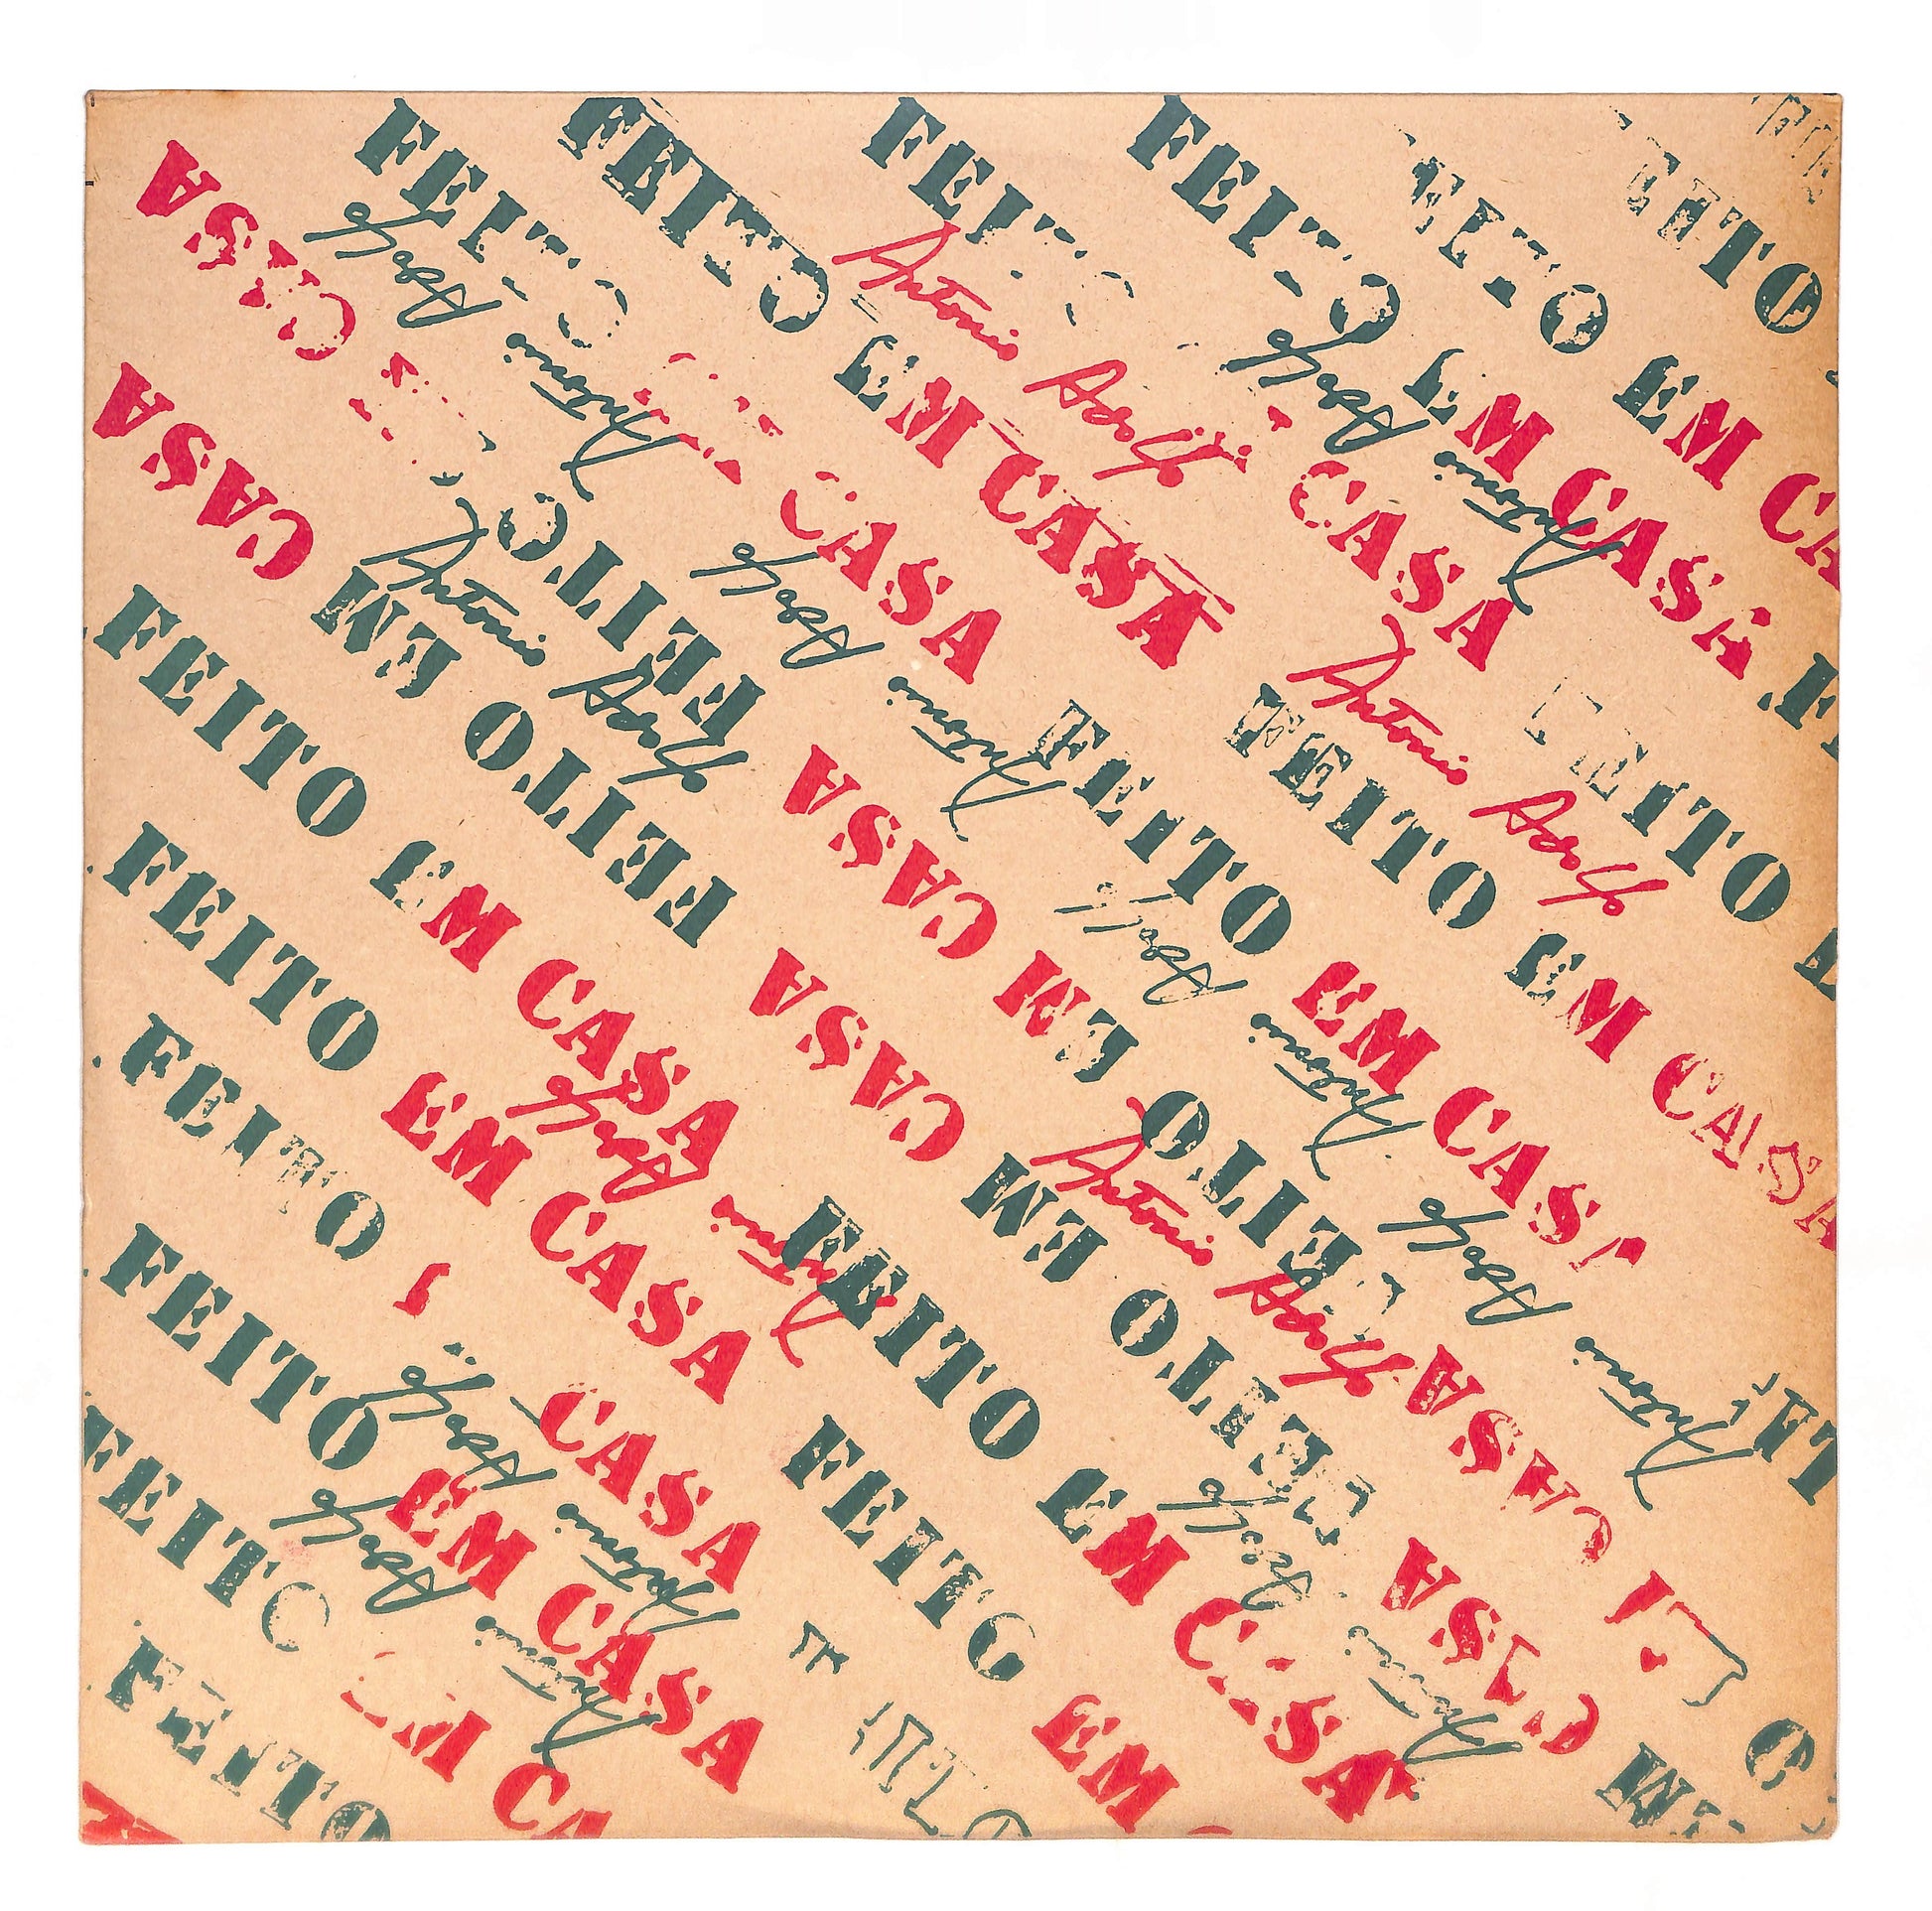 FEITO
EITO
FEITO EM CA
FEITO EM CASA
FEITO CASA
FEITO EM CASA
FEITO CASA
Antonio Adolfo
Antonio Adolfo
Antonio Adolfo
FEITO CASA
FEITO EM CASA
Antonio Adolfo
Antonio Adolfo
Antonio Adolfo
EITO
FEITO EM CASA
FEITO EM CASA
FEITO EM CASA
FEITO EM CASA
FEITO EM CASA
FEITO EM CASA
Antonio Adolfo
Antonio Adolfo
Antonio Adolfo
Antonio Adolfo
FEITO CASA
FEITO EM CASA
FEITO EM CASA
FEITO EM
CASA
EM CASA
Antonio Adolfo
Antonio Adolfo
Antonio Adolfo
FEITO EM CA
FEITO